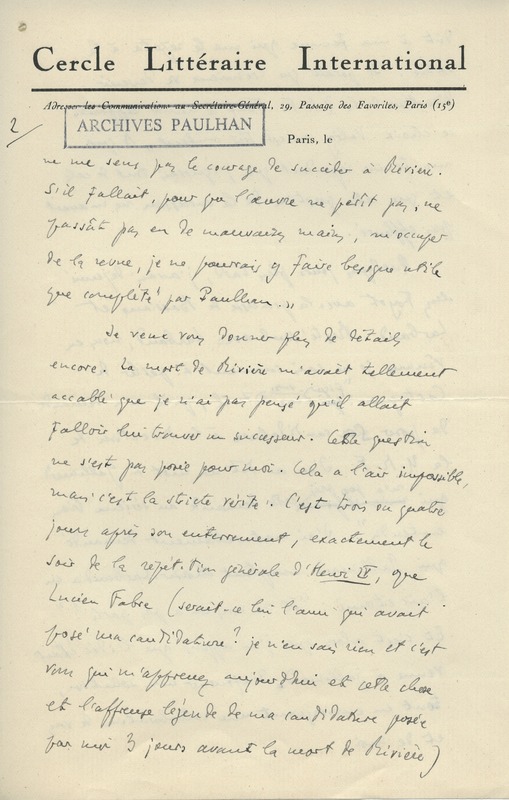 Cercle Littéraire International
Adresser les Communications au Secrétaire-Général, 29, Passage des Favorites, Paris (15e)
2/
ARCHIVES PAULHAN
Paris, le
ne me sens pas le courage de succéder à Rivière.
S'il fallait, pour que l'œuvre ne périt pas, ne
passât pas en de mauvaises mains, m'occuper
de la revue, je ne pourrais y faire besogne utile
que complété par Paulhan."
Je veux vous donner plus de détails
encore. La mort de Rivière m'avait tellement
accablé que je n'ai pas pensé qu'il allait
falloir lui trouver un successeur. Cette question
ne s'est pas posée pour moi. Cela a l'air impossible,
mais c'est la stricte vérité. C'est trois ou quatre
jours après son enterrement, exactement le
soir de la répétition générale d'Henri IV, que
Lucien Fabre (serait-ce lui l'ami qui avait
posé ma candidature? je n'en sais rien et c'est
vous qui m'apprenez aujourd'hui et cette chose
et l'affreuse légende de ma candidature posée
par moi 3 jours avant la mort de Rivière)